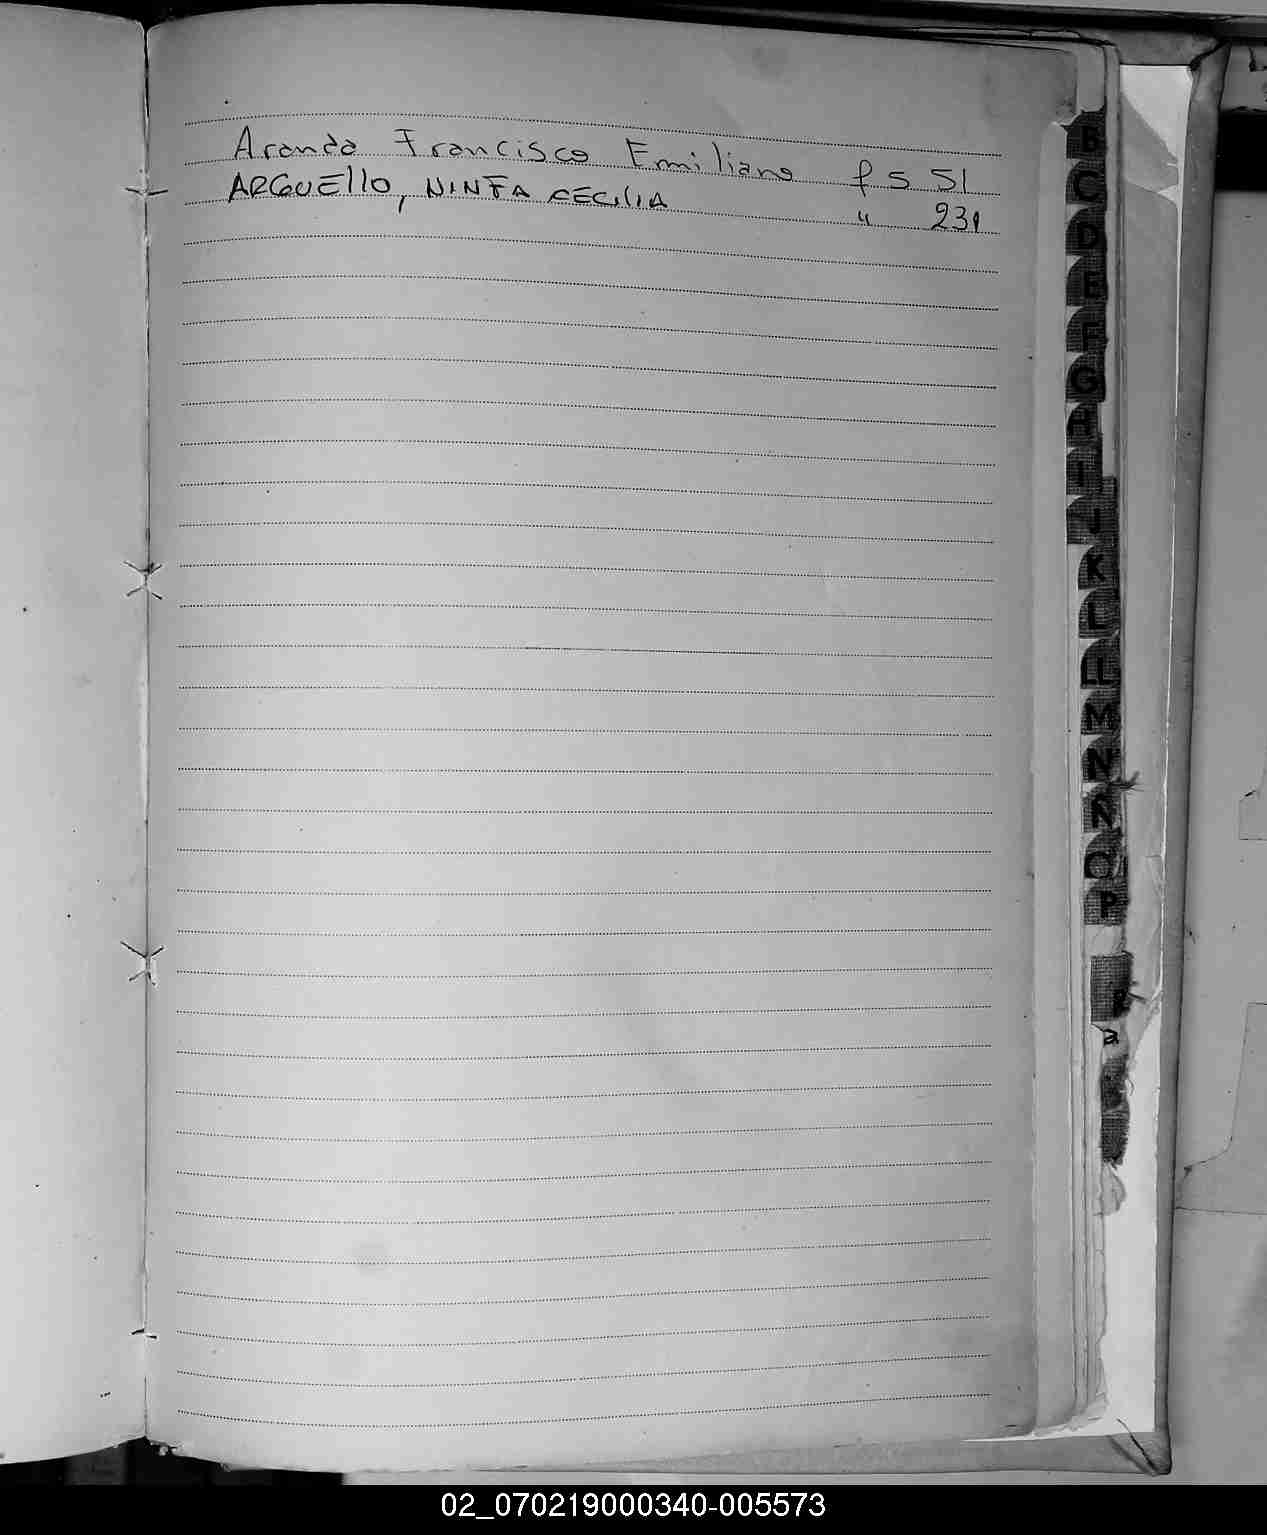 Aranda Francisco Emiliano fs 51
ARGUEllO, NINFA CECiliA " 231
B
C
D
E
F
G
H
I
J
K
L
LL
M
N
Ñ
O
P
a
02_070219000340-005573